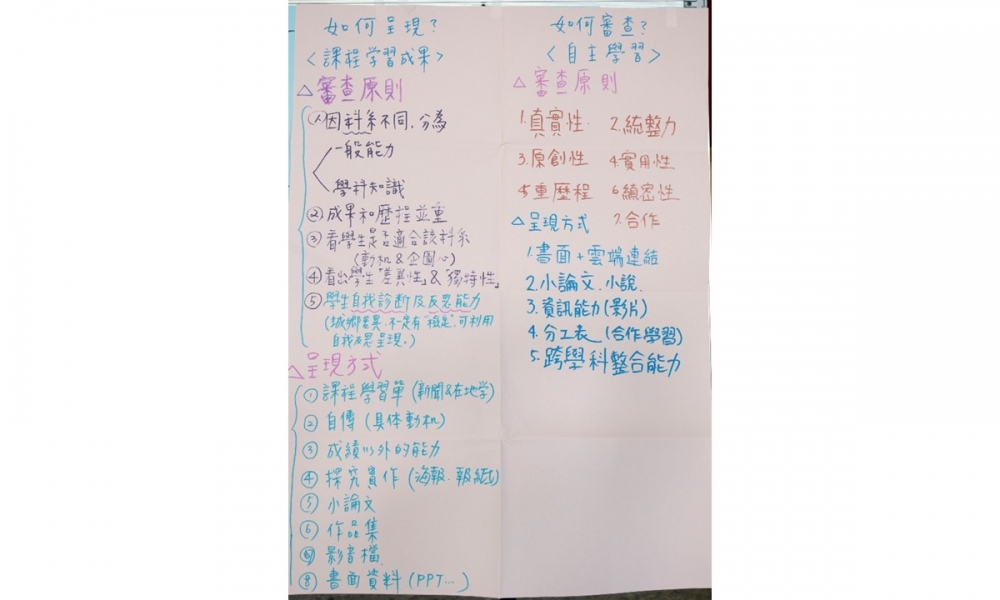 如何呈現?
<課程学習成果>
△審查原則
①因科系不同,分為
一般能力
學科知識
②成果和歷程並重
③看學生是否適合該科系
(動机&企圖心)
④看出學生「差異性」&「獨特性」
⑤學生自我診断及反思能力
(城鄉差異,不一定有"檢定",可利用
自我反思呈現。)
△呈現方式
①課程學習單(新聞&在地学)
②自傳(具体動机)
③成績以外的能力
④探究實作(海報、報紙)
⑤小論文
⑥作品集
⑦影音檔
⑧書面資料(PPT...)
如何審查?
<自主學習>
△審查原則
1.真實性 2.統整力
3.原創性 4.實用性
5.重歷程 6.縝密性
7.合作
△呈現方式
1.書面+雲端連結
2.小論文、小說
3.資訊能力(影片)
4.分工表(合作學習)
5.跨學科整合能力